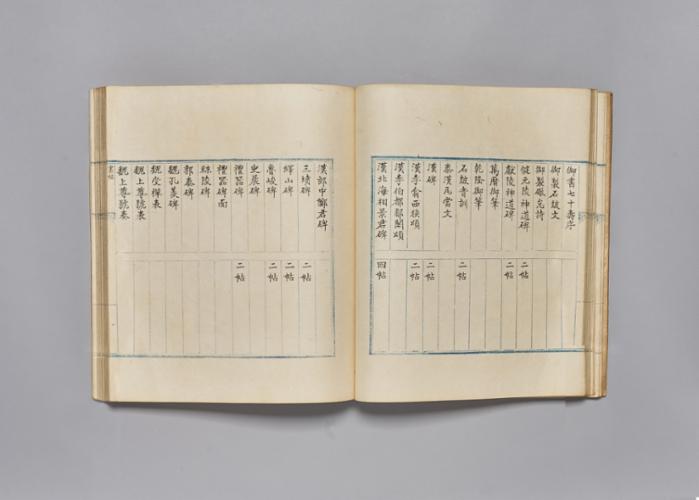 御書七十壽序
御製石鼓文
御製詩
健元陵神道碑 二帖
獻陵神道碑 二帖
萬曆御筆
乾隆御筆
石鼓音訓 二帖
秦漢瓦當文
漢碑 二帖
漢李翕西狹頌 二帖
漢李伯都郙閣頌
漢北海相景君碑 四帖
漢郎中鄭君碑
三墳碑 二帖
繹山碑 二帖
魯峻碑 二帖
史晨碑
禮器碑 二帖
禮器碑面
陵碑
郭泰碑
魏孔羨碑
魏受禪表
魏上尊號表
魏上尊號奏